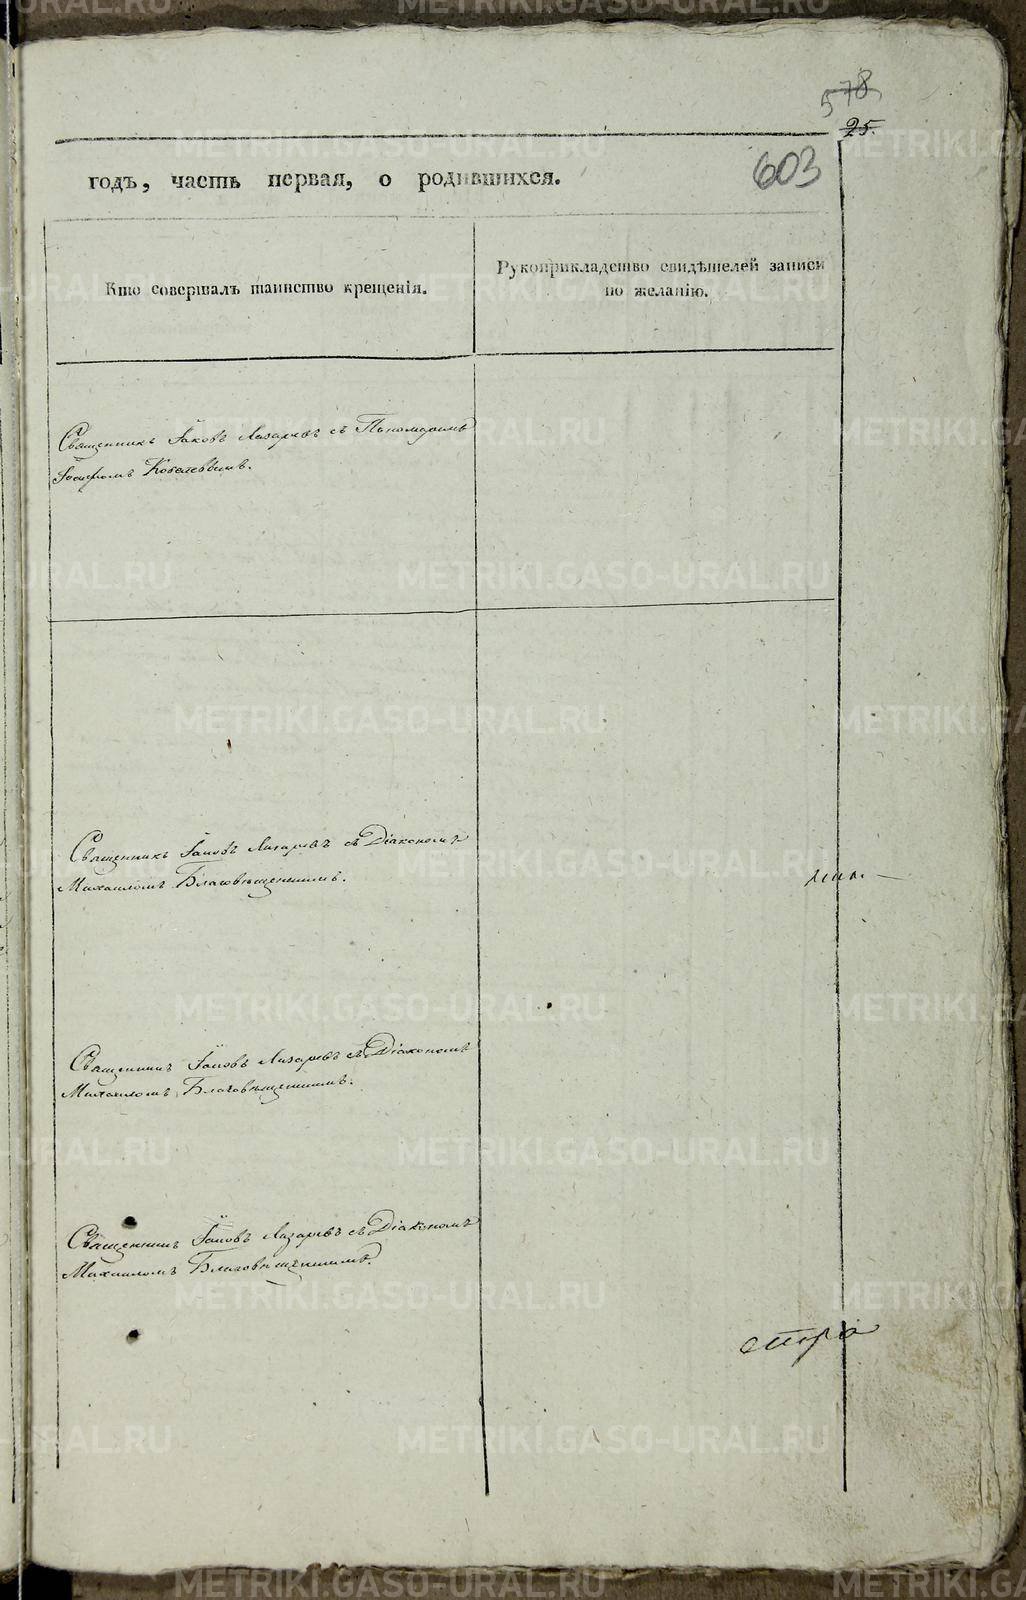 578
25.
603
годъ, часть первая, о родившихся.
Кто совершалъ таинство крещенія.
Рукоприкладство свидѣтелей записи
по желанію.
Священникъ Іаковъ Лазаревъ съ Пономаремъ
Іосифомъ Ковалевымъ.
Священникъ Іаковъ Лазаревъ съ Діакономъ
Михаиломъ Благовѣщенскимъ.
Священникъ Іаковъ Лазаревъ съ Діакономъ
Михаиломъ Благовѣщенскимъ.
Священникъ Іаковъ Лазаревъ съ Діакономъ
Михаиломъ Благовѣщенскимъ.
METRIKI.GASO-URAL.RU